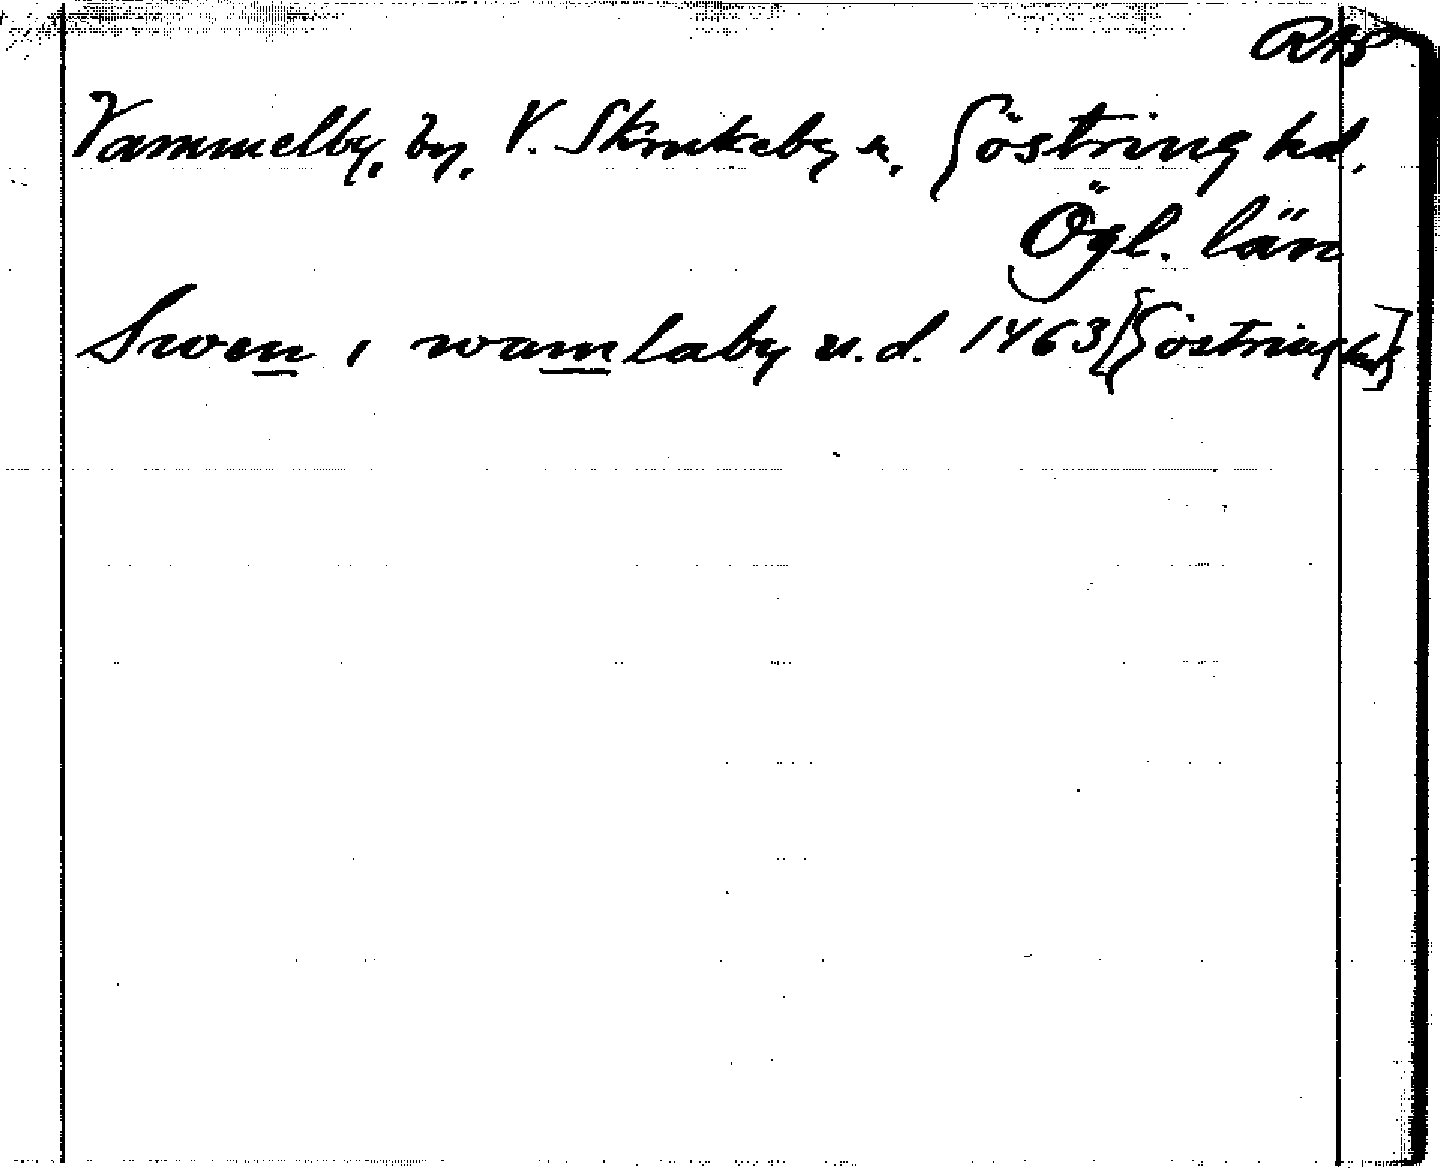 RAP
Vammelby, by, V. Skrukeby sn, Göstring hd.
Ögl. län
Swen i wamlaby u.d. 1463 [Göstring hd]